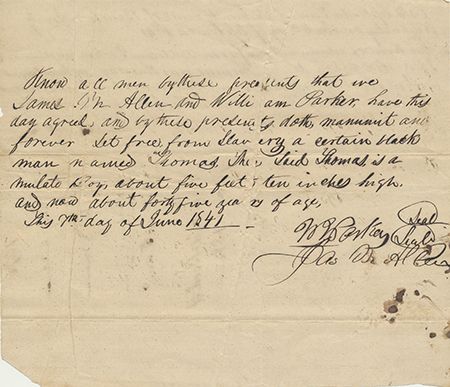 Know all men by these presents that we
James M Allen and William Parker, have this
day agreed, and by these presents doth, manumit and
forever Set free, from Slavery a certain black
man named Thomas, The Said Thomas, is a
mulato Boy, about five feet, ten inches high.
and now about forty five years of age,
This 7th day of June 1841
W Parker Seal
Jas M Allen Seal